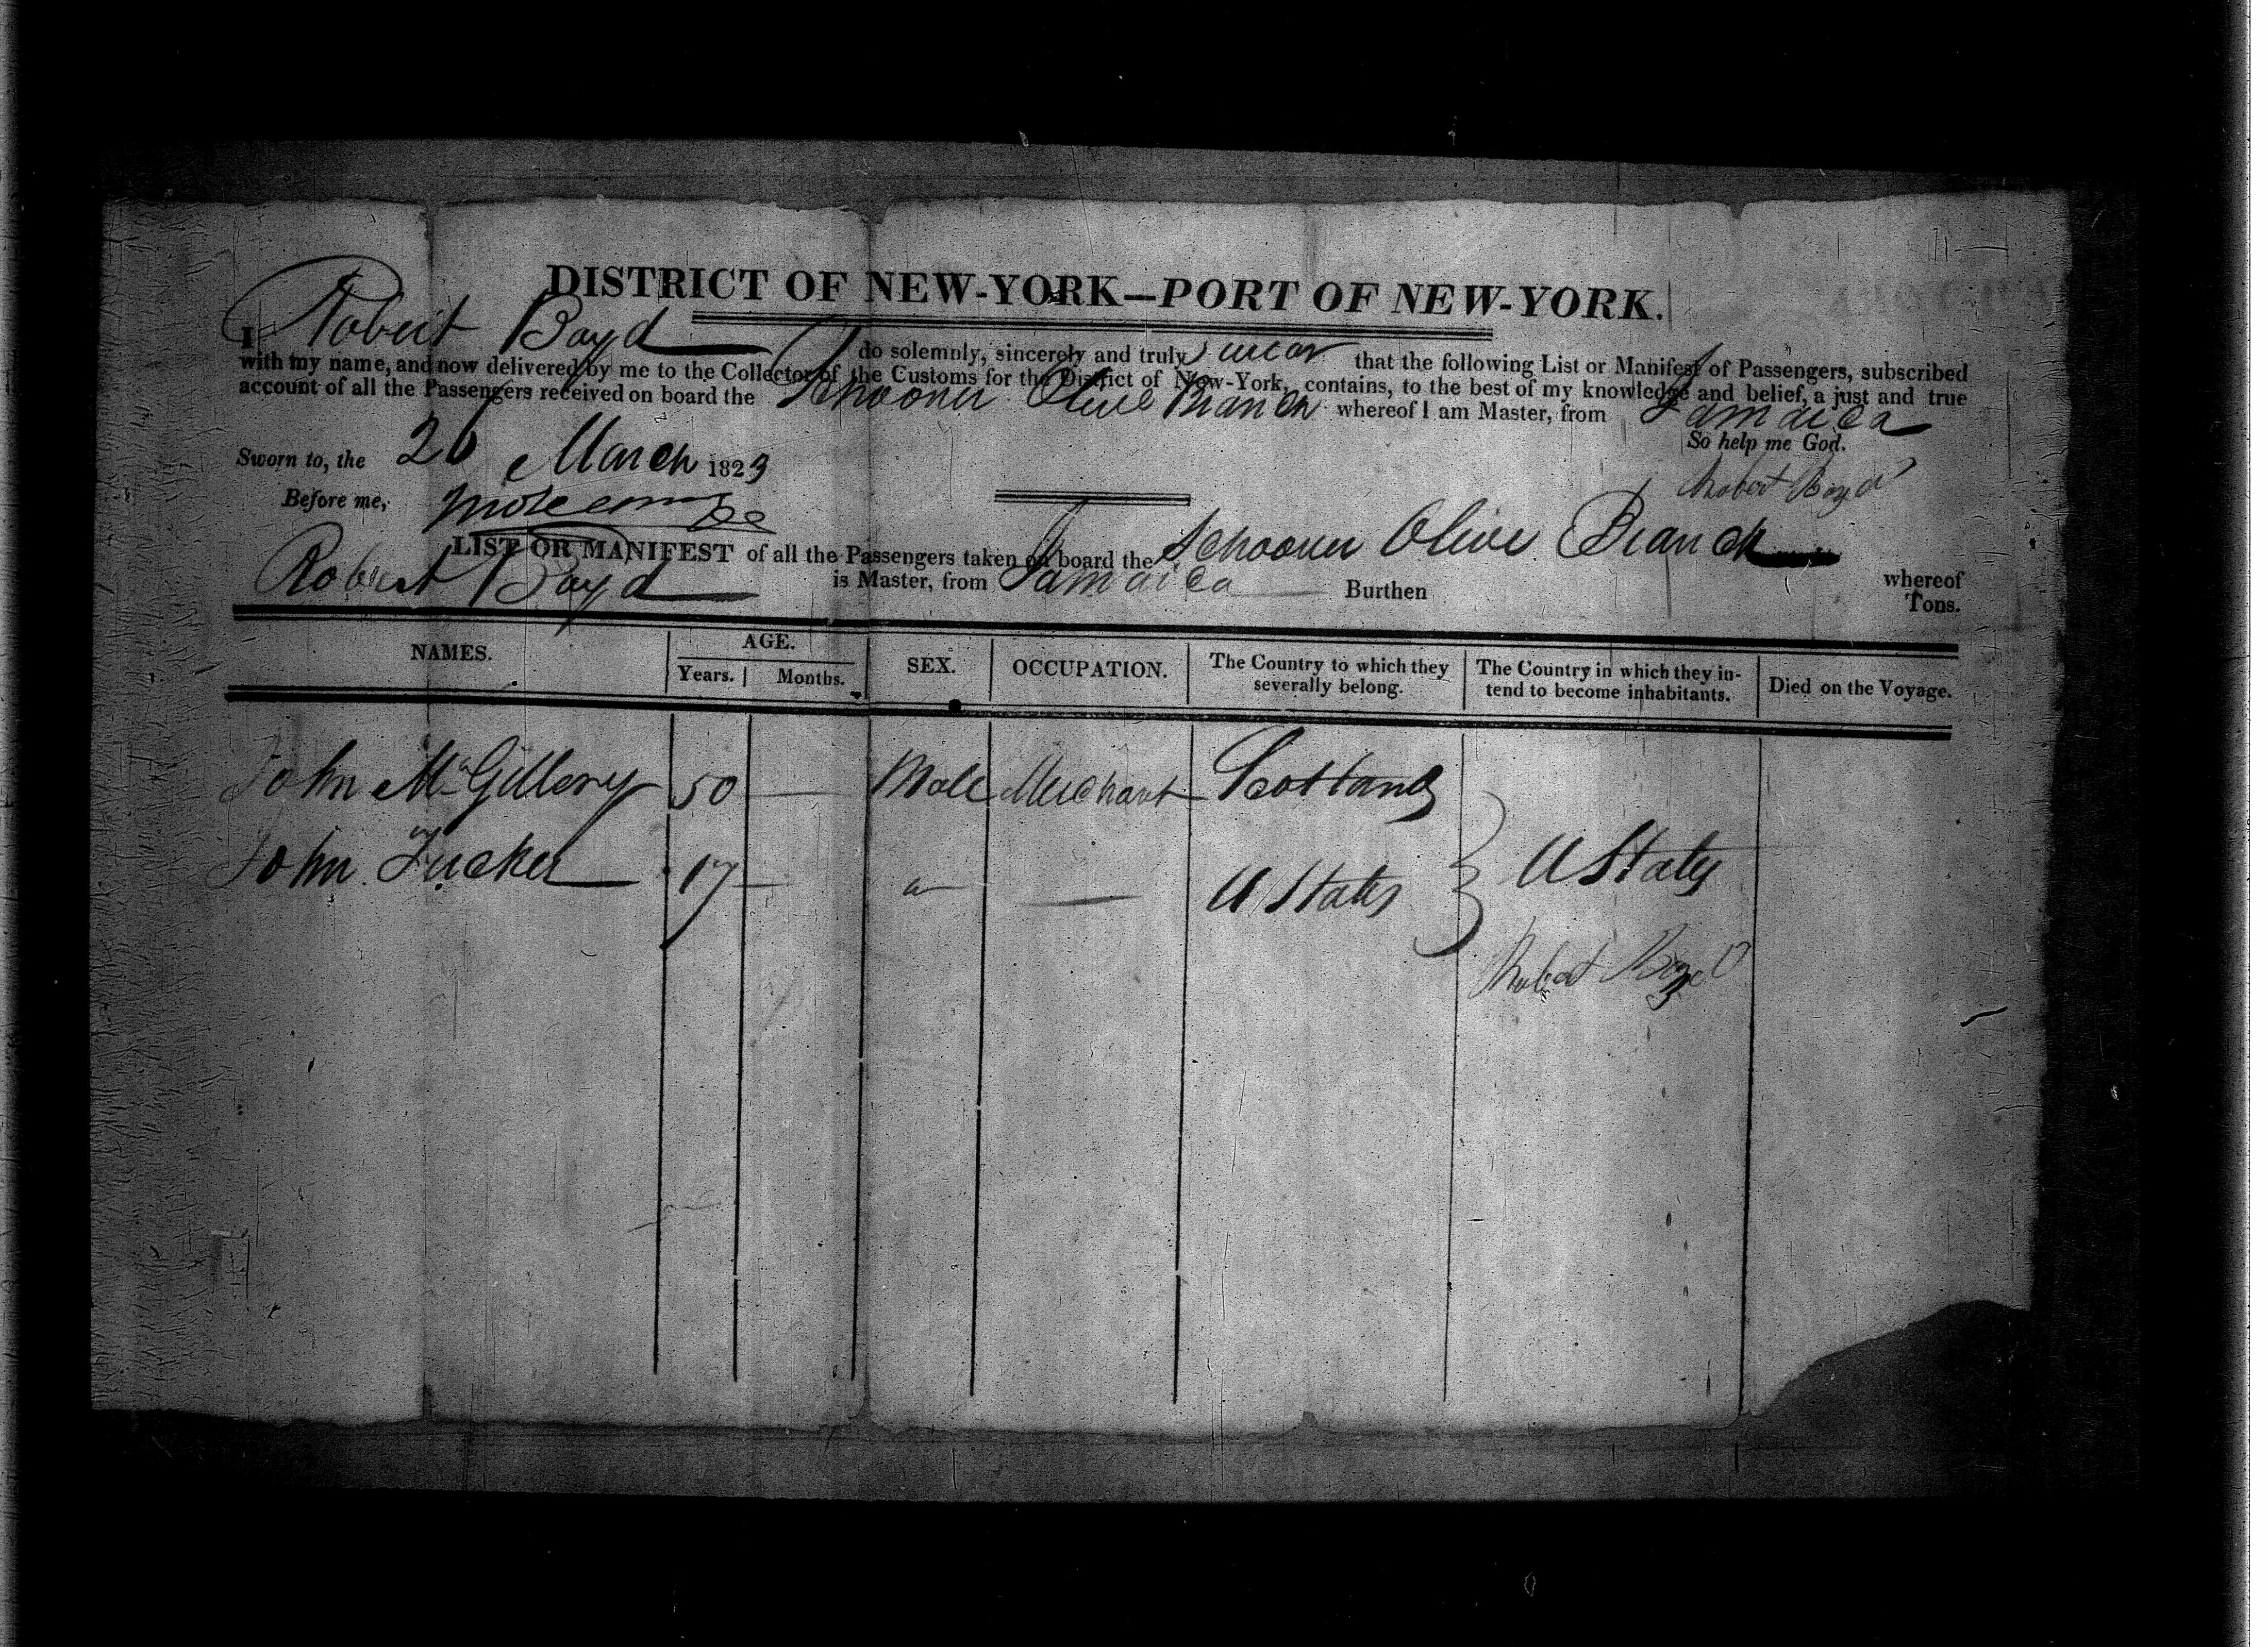 DISTRICT OF NEW-YORK—PORT OF NEW-YORK.
I Robert Boyd do solemnly, sincerely and truly Swear that the following List or Manifest of Passengers, subscribed
with my name, and now delivered by me to the Collector of the Customs for the District of New-York, contains, to the best of my knowledge and belief, a just and true
account of all the Passengers received on board the Schooner Olive Branch whereof I am Master, from Jamaica
So help me God.
Sworn to, the 26 March 1823
Robert Boyd
Before me,
LIST OR MANIFEST of all the Passengers taken on board the Schooner Olive Branch whereof
Robert Boyd is Master, from Jamaica Burthen Tons.
NAMES. AGE. SEX. OCCUPATION. The Country to which they severally belong. The Country in which they intend to become inhabitants. Died on the Voyage.
Years. Months.
John McGillery 50 — Male Merchant Scotland
John Tucker 17 — — U States } U States
Robert Boyd